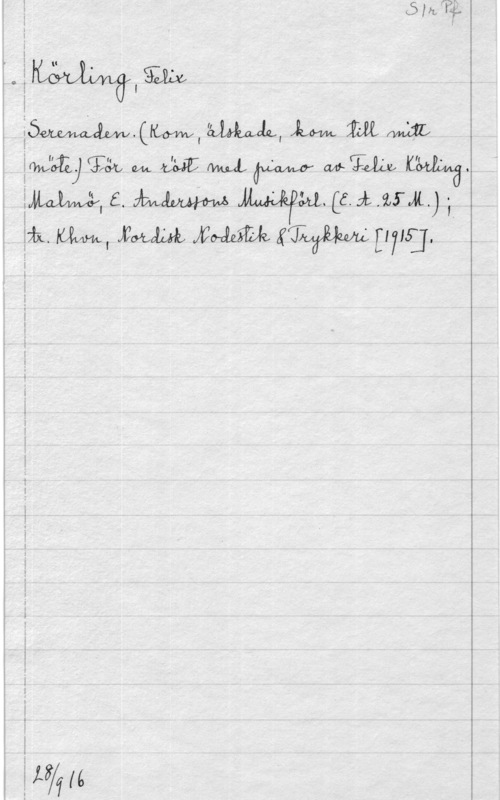 S1r Pf
Körling, Felix
Serenaden. (Kom, älskade, kom till mitt
möte.) För en röst med piano av Felix Körling.
Malmö, E. Andersjons Musikförl. (E. A. 25 M.) ;
tr. Khvn, Nordisk Nodestik & Trykkeri [1915].
28/9 16